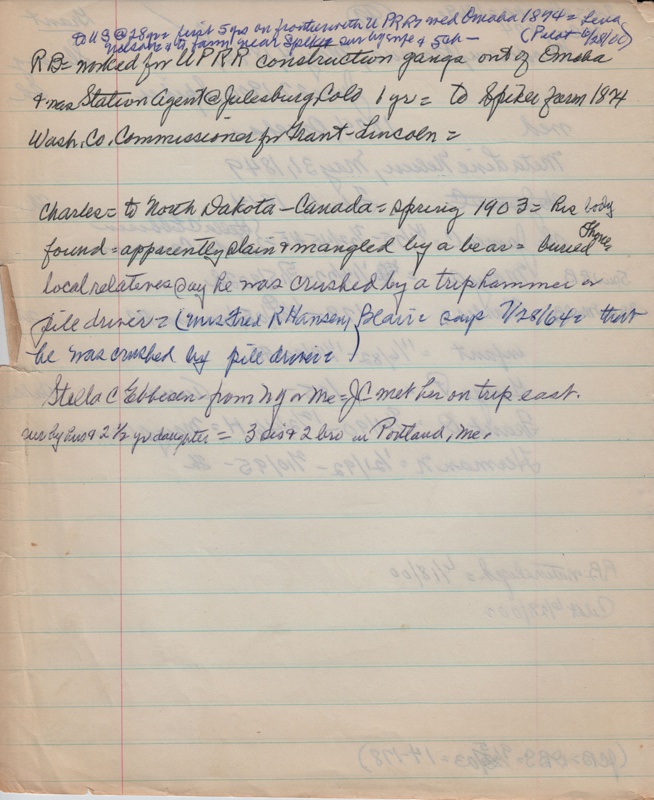 to US @ 28 yrs = first 5 yrs on frontier with UPRR = wed Omaha 1874 = Lena
Nelson = & to farm near Spiker sur by wife & 5 ch — (Pilot 6/28/00)
RB = worked for UPRR construction gangs out of Omaha
& was Station Agent @ Julesburg, Colo 1 yr = to Spiker farm 1874
Wash. Co. Commissioner for Grant-Lincoln =
Charles = to North Dakota - Canada = spring 1903 = his body
found = apparently slain & mangled by a bear = buried there =
local relatives say he was crushed by a triphammer or
pile driver = (Mrs Fred R Hansen, Blair = says 7/28/64 = that
he was crushed by pile driver = )
Stella C Ebbesen - from NY or Me = JC met her on trip east.
sur by hus & 2 1/2 yr daughter = 3 sis & 2 bro in Portland, Me.